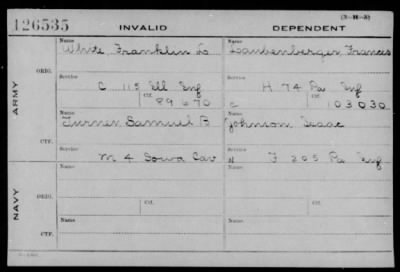 126535 INVALID DEPENDENT
(3-M-3)
Name Name
White Franklin L Laubenberger, Frances
ORIG. Service Service
C 115 Ill Inf H 74 Pa Inf
Ctf. Ctf.
89670 C 103030
ARMY
Name Name
Turner Samuel B Johnson Isaac
CTF. Service Service
M 4 Iowa Cav N F 205 Pa Inf
Name Name
ORIG.
Service Ctf. Service Ctf.
NAVY
Name Name
CTF.